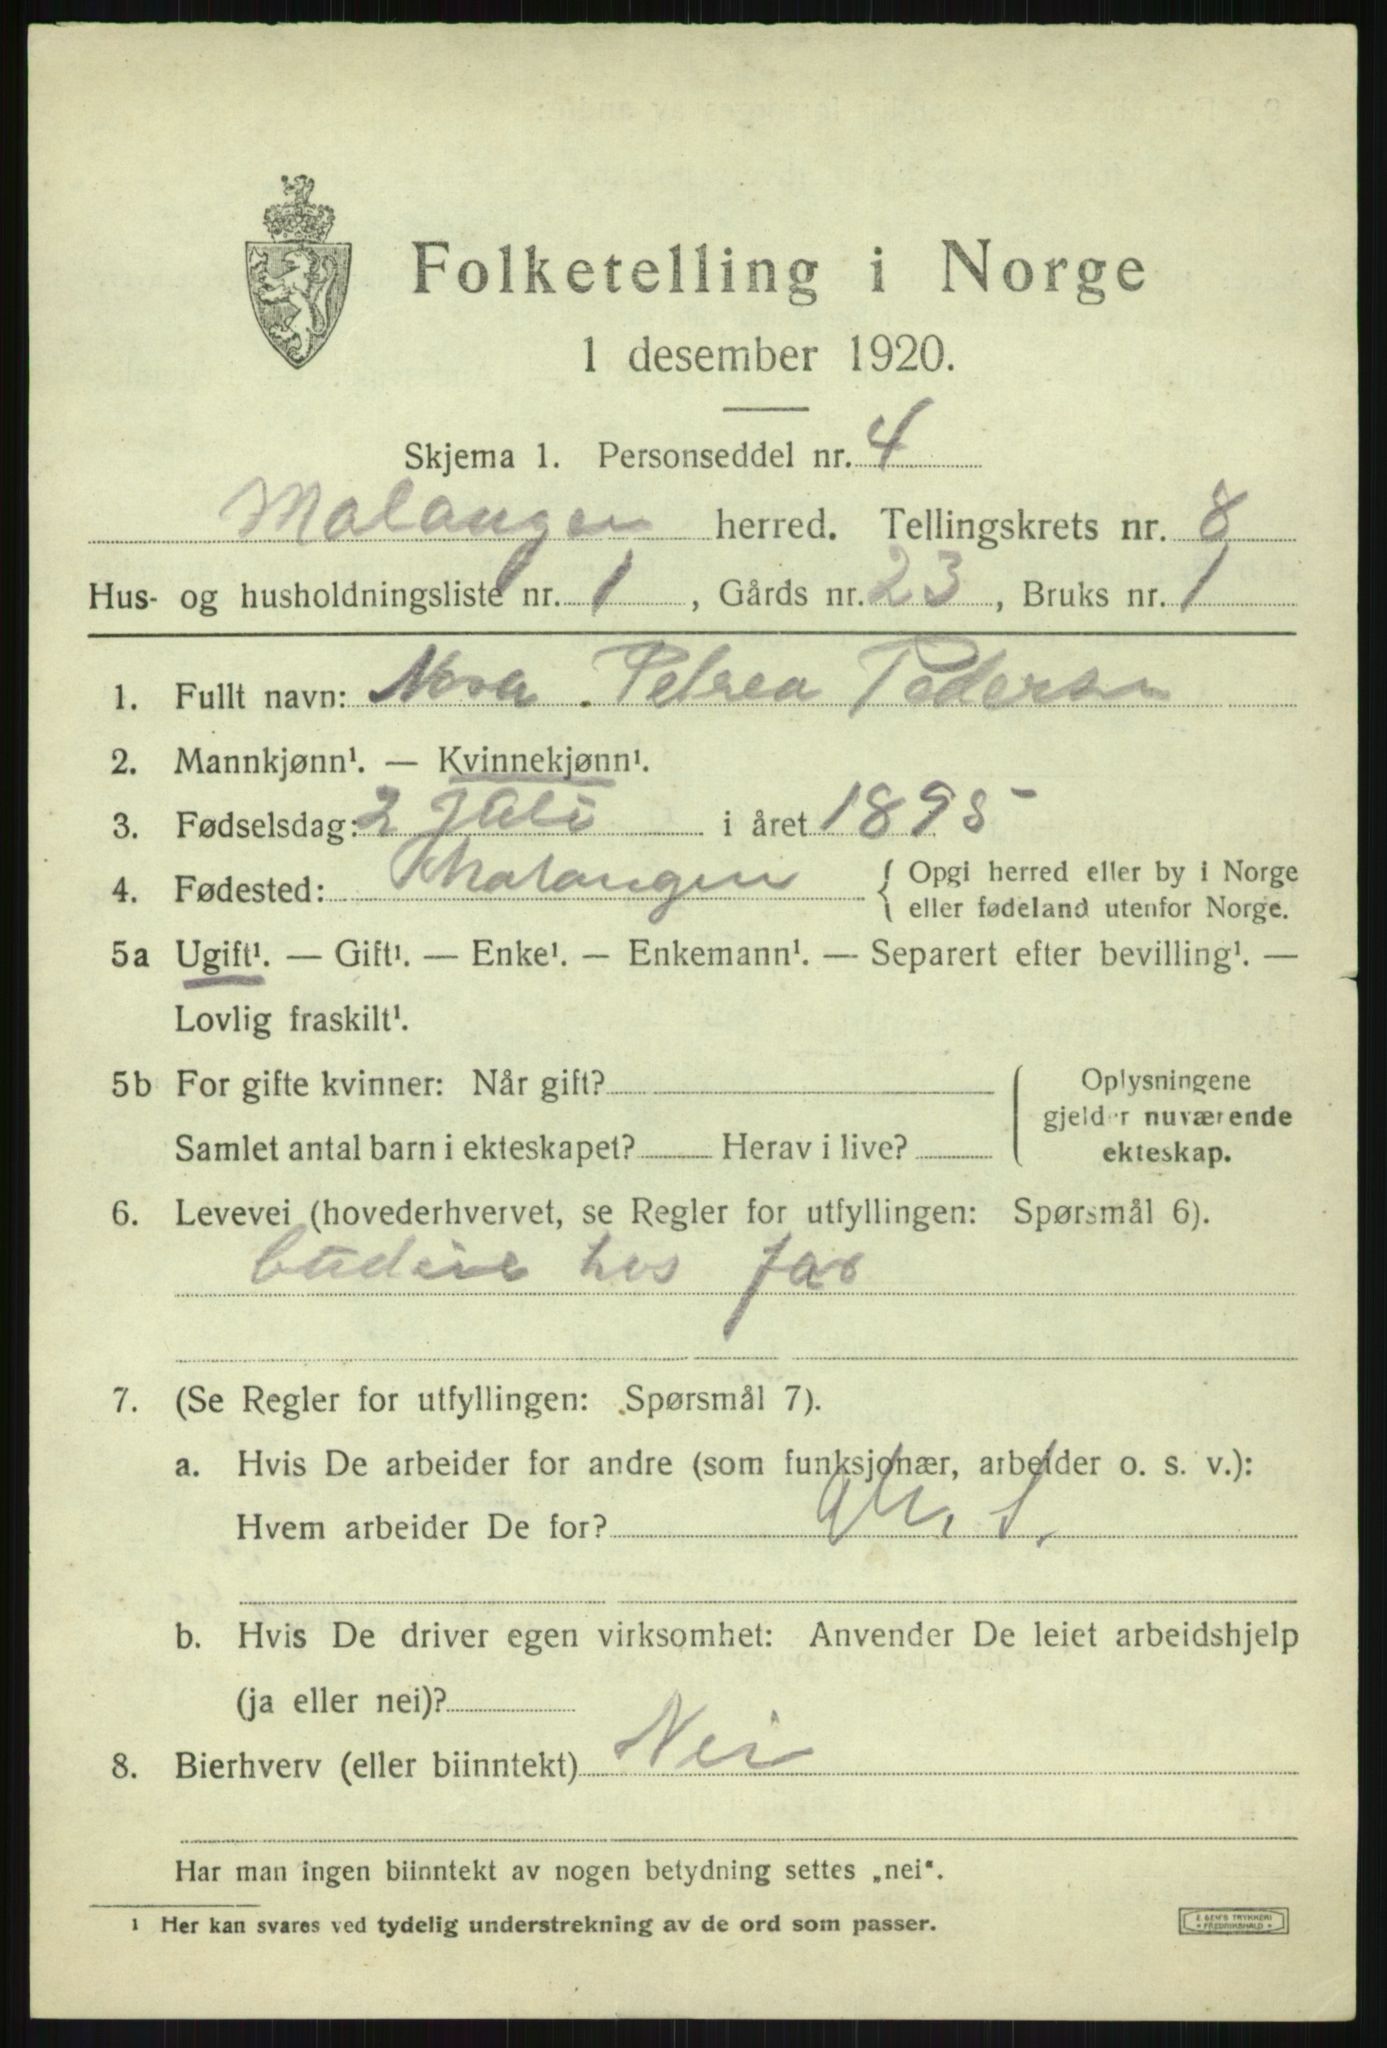 Folketelling i Norge
1 desember 1920.
Skjema 1. Personseddel nr. 4
Malangen herred. Tellingskrets nr. 8
Hus- og husholdningsliste nr. 1, Gårds nr. 23, Bruks nr. 1
1. Fullt navn: Nora Petrea Pedersen
2. Mannkjønn¹. — Kvinnekjønn¹.
3. Fødselsdag: 2 Juli i året 1895
4. Fødested: Malangen { Opgi herred eller by i Norge
eller fødeland utenfor Norge.
5a Ugift¹. — Gift¹. — Enke¹. — Enkemann¹. — Separert efter bevilling¹. —
Lovlig fraskilt¹.
5b For gifte kvinner: Når gift? Oplysningene
gjelder nuværende
Samlet antal barn i ekteskapet? Herav i live? ekteskap.
6. Levevei (hovederhvervet, se Regler for utfyllingen: Spørsmål 6).
budeie hos far
7. (Se Regler for utfyllingen: Spørsmål 7).
a. Hvis De arbeider for andre (som funksjonær, arbeider o. s. v.):
Hvem arbeider De for?
b. Hvis De driver egen virksomhet: Anvender De leiet arbeidshjelp
(ja eller nei)?
8. Bierhverv (eller biinntekt) Nei
Har man ingen biinntekt av nogen betydning settes „nei“.
¹ Her kan svares ved tydelig understrekning av de ord som passer.
E. SEM'S TRYKKERI
FREDRIKSHALD